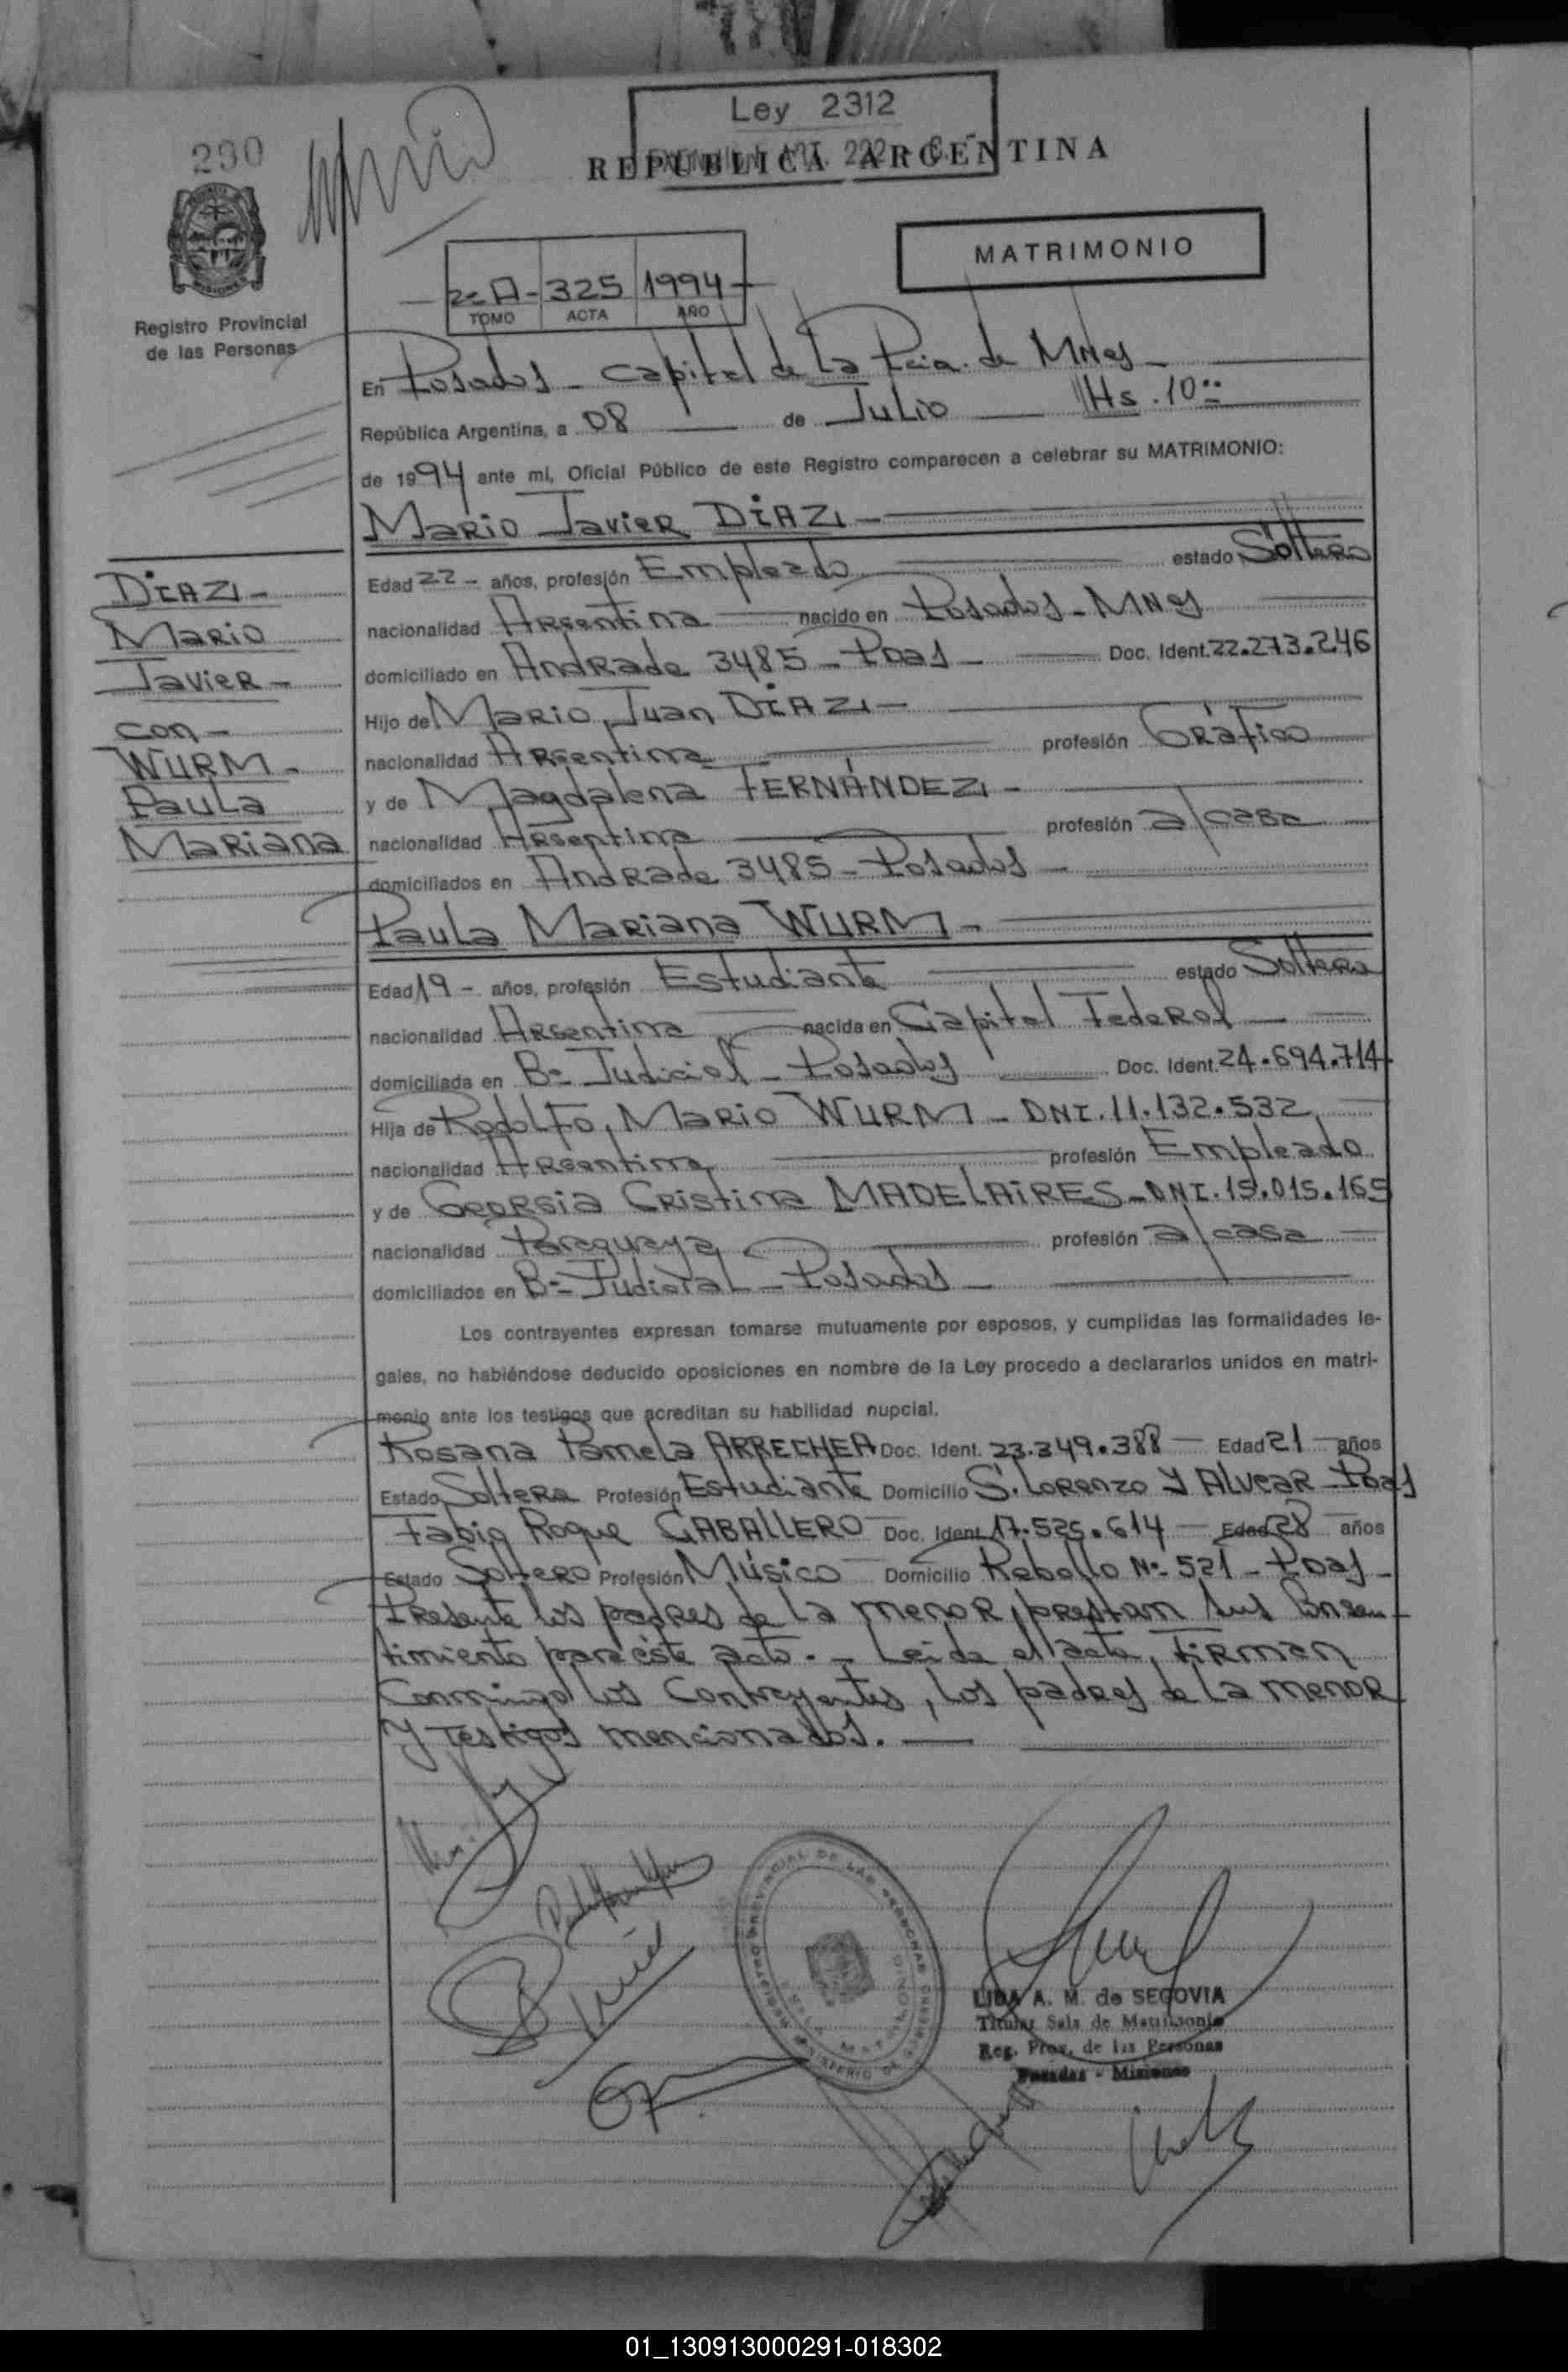 Ley 2312
290
REPUBLICA ARGENTINA
MATRIMONIO
2º A - 325 1994
TOMO ACTA AÑO
Registro Provincial
de las Personas
En Posadas - Capital de La Pcia. de MNes -
República Argentina, a 08 de Julio Hs. 10:00
de 1994 ante mí, Oficial Público de este Registro comparecen a celebrar su MATRIMONIO:
Mario Javier DíAZ -
Edad 22 - años, profesión Empleado estado Soltero
nacionalidad Argentina nacido en Posadas - MNes
domiciliado en Andrade 3485 - Pdas - Doc. Ident. 22.273.246
Hijo de Mario Juan DíAZ -
nacionalidad Argentina profesión Gráfico
y de Magdalena FERNÁNDEZ -
nacionalidad Argentina profesión a/casa
domiciliados en Andrade 3485 - Posadas -
DíAZ -
Mario
Javier -
con -
WURM -
Paula
Mariana
Paula Mariana WURM -
Edad 19 - años, profesión Estudiante estado Soltera
nacionalidad Argentina nacida en Capital Federal -
domiciliada en Bº Judicial - Posadas Doc. Ident. 24.694.714
Hija de Rodolfo Mario WURM - DNI. 11.132.532
nacionalidad Argentina profesión Empleado
y de Georgia Cristina MADELAIRES - DNI. 15.015.165
nacionalidad Paraguaya profesión a/casa
domiciliados en Bº Judicial - Posadas -
Los contrayentes expresan tomarse mutuamente por esposos, y cumplidas las formalidades le-
gales, no habiéndose deducido oposiciones en nombre de la Ley procedo a declararlos unidos en matri-
monio ante los testigos que acreditan su habilidad nupcial.
Rosana Pamela ARRECHEA Doc. Ident. 23.349.388 - Edad 21 años
Estado Soltera Profesión Estudiante Domicilio S. Lorenzo y Alvear - Pdas
Fabio Roque CABALLERO Doc. Ident. 17.525.614 - Edad 28 años
Estado Soltero Profesión Músico Domicilio Rebollo Nº 521 - Pdas -
Presente los padres de la menor, prestam sus Consen-
timiento para éste acto. - Leida el acta, firman
Conmigo los Contrayentes, los padres de la menor
y testigos mencionados. -
REGISTRO PROVINCIAL DE LAS PERSONAS
MINISTERIO DE GOBIERNO
LIDA A. M. de SEGOVIA
Titular Sala de Matrimonio
Reg. Prov. de las Personas
Posadas - Misiones
01_130913000291-018302